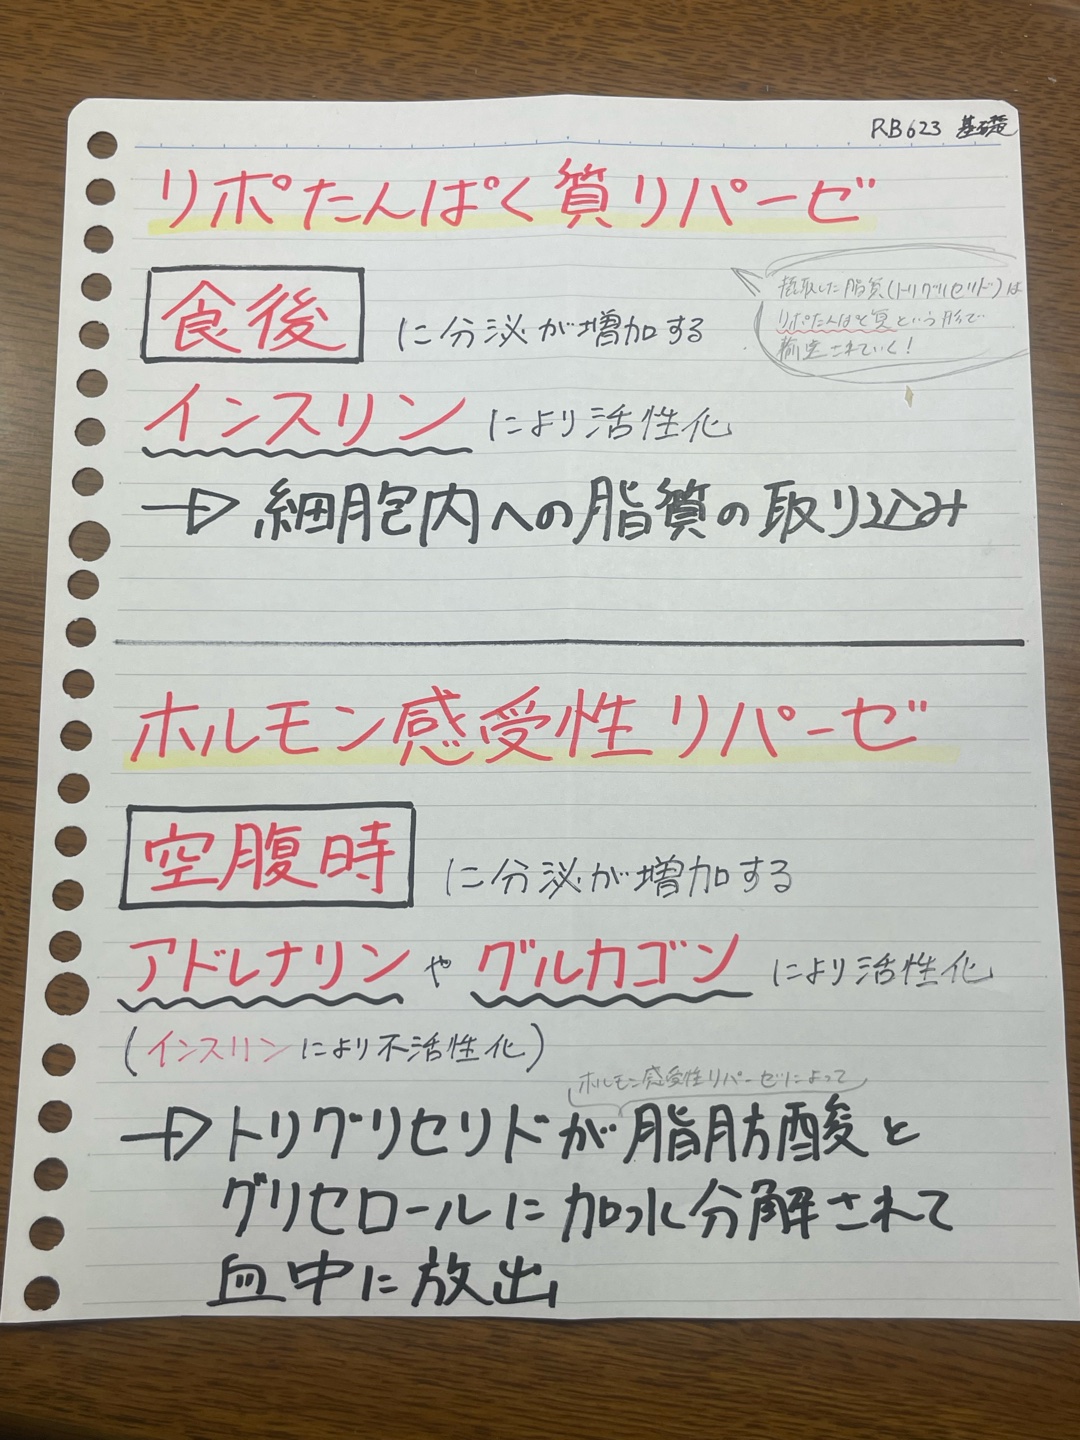 RB623 基礎
リポたんぱく質リパーゼ
食後 に分泌が増加する
摂取した脂質(トリグリセリド)は
リポたんぱく質という形で
輸送されていく!
インスリン により活性化
→ 細胞内への脂質の取り込み
ホルモン感受性リパーゼ
空腹時 に分泌が増加する
アドレナリン や グルカゴン により活性化
(インスリンにより不活性化)
ホルモン感受性リパーゼによって
→ トリグリセリドが脂肪酸と
グリセロールに加水分解されて
血中に放出